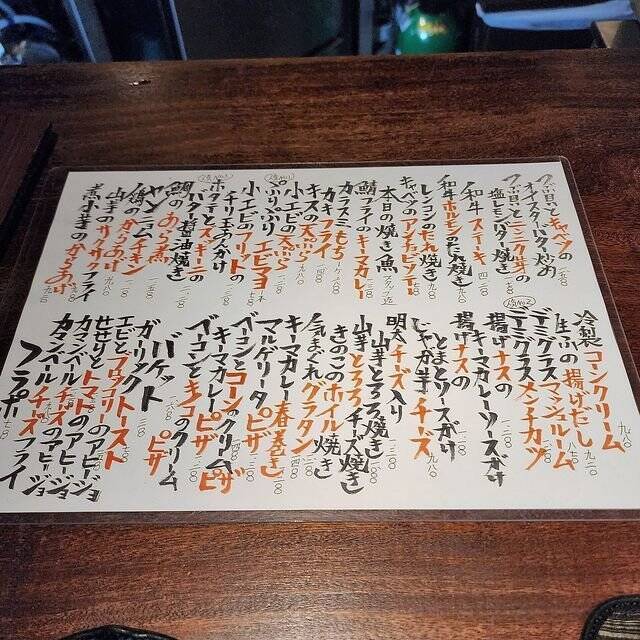 つぶ貝とキャベツの
オイスターバター炒め
つぶ貝とニンニク芽の
塩レモンバター焼き
和牛ステーキ
和牛ホルモンのたれ焼き
レンコンのたれ焼き
キャベツのアンチョビソテー
本日の焼き魚
鯖フライのキーマカレー
カラスミもち
カキフライ
キスの天ぷら
小エビの天ぷら
ぷりぷりエビマヨネーズ
小エビのフリットの
チリ玉あんかけ
ホタテとズッキーニの
バター醤油焼き
鯛のあら煮
ヤンニョムチキン
鶏のからあげ
山芋のサクサクフライ
煮小芋のからあげ
冷製コーンクリーム
生ふの揚げだし
デミグラスマッシュルーム
デミグラスメンチカツ
揚げナスの
キーマカレーソースがけ
揚げナスの
とまとソースがけ
じゃが芋チーズ
明太チーズ入り
山芋とろろ焼き
山芋とろろチーズ焼き
きのこのホイル焼き
気まぐれグラタン
キーマカレー春巻き
マルゲリータピザ
ベーコンとコーンのクリームピザ
キーマカレーピザ
ベーコンとキノコのクリームピザ
バケット
ガーリックトースト
エビとブロッコリーのアヒージョ
せせりとトマトのアヒージョ
カマンベールチーズのアヒージョ
カマンベールチーズフライ
フラポテ